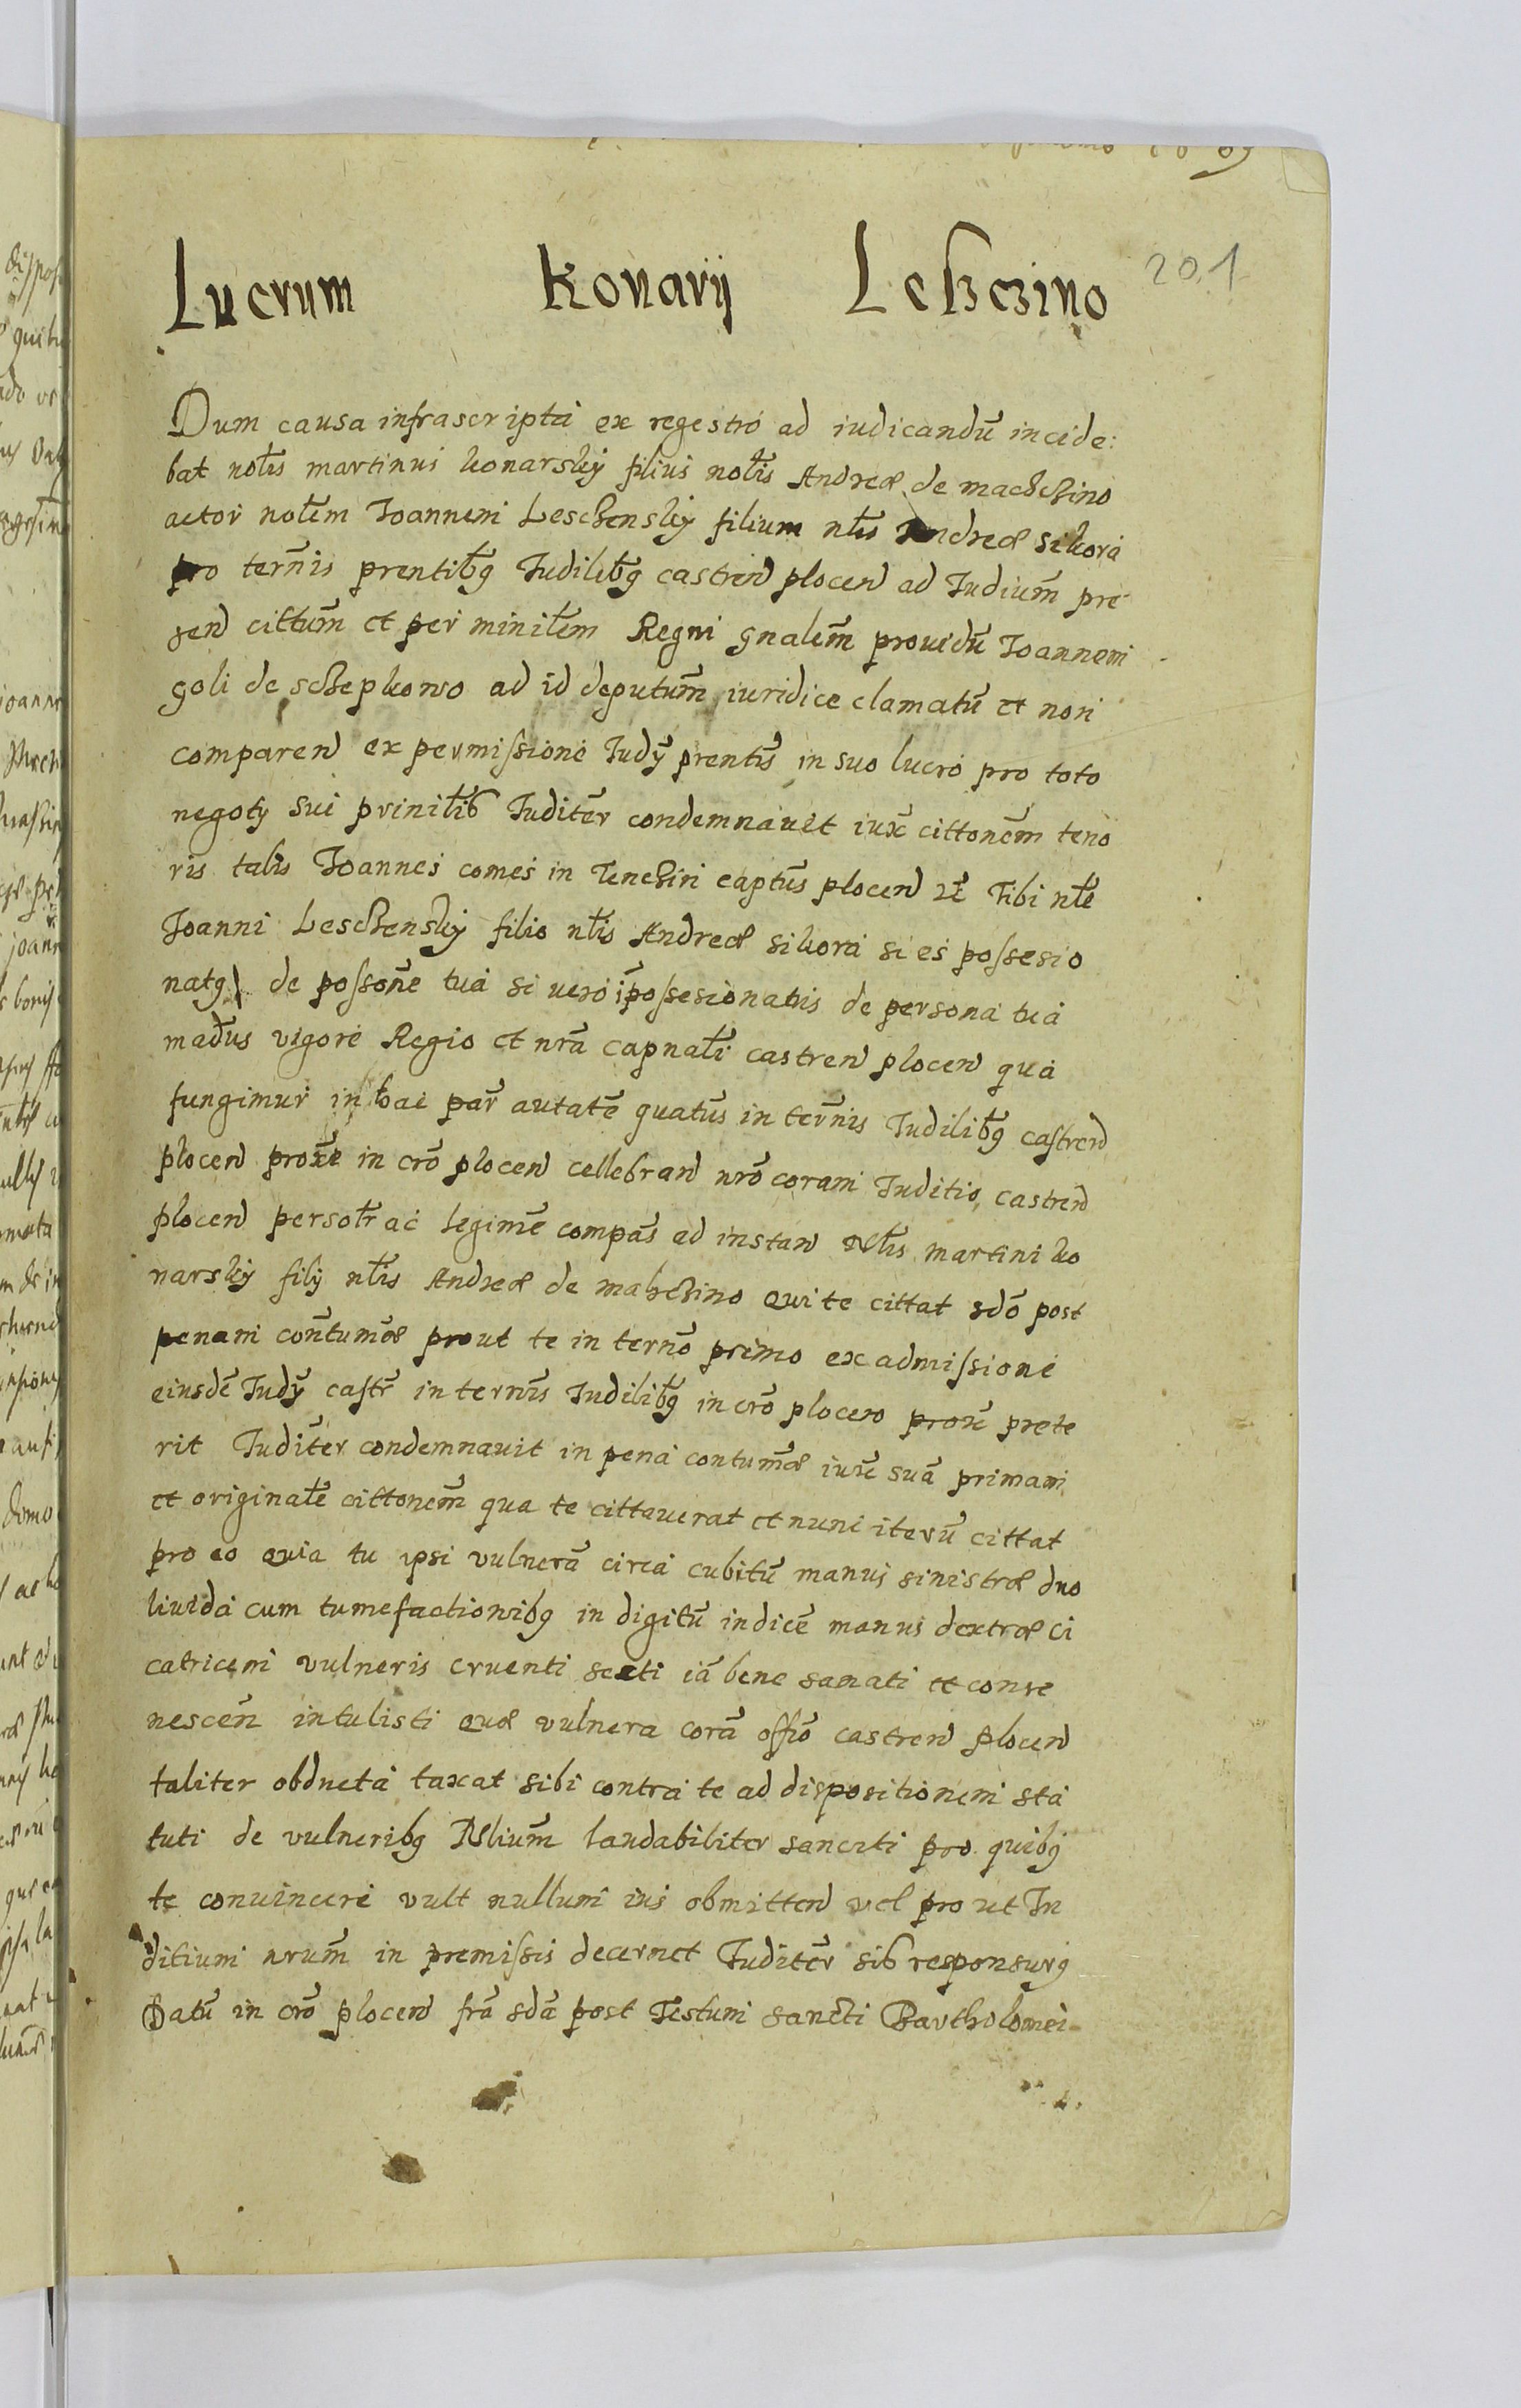 201
Lucrum Konarij Leszczino
Dum causa infrascripta ex regestro ad iudicandū incide:
bat nol̄is martinus konarskij filius nol̄is Andreæ de machchino
actor nol̄em Joannem Leschenskij filium nl̄is Andreæ sikora
pro ter̄nis prentib9 Judilib9 castren̄ plocen̄ ad Judiūm pre
sen̄ cittūm et per minil̄em Regni gnalēm prouidū Joannem
goli de schepkowo ad id deputūm iuridice clamatū et non
comparen̄ ex permissione Judȳ prentis̄ in suo lucro pro toto
negoty sui prinil̄ib Juditēr condemnauit iux̄ cittonēm teno
ris talis Joannes comes in Tenchin captūs plocen̄ Tibi nl̄e
Joanni Leschenskij filio nl̄is Andreæ sikora si es possesio
nat9 de possonē tua si uero īpossesionatus de persona tua
mad̄us vigore Regio et nrā capnal̄i castren̄ plocen̄ qua
fungimur in hac par̄ autatē quatūs in ter̄nis Judilib9 castren̄
plocen̄ prox̄e in crō plocen̄ cellebran̄ nrō coram Juditio castren̄
plocen̄ persol̄r ac legimē compas̄ ad instan̄ Nl̄is martini ko
narskij filij nl̄is Andreæ de mahchino qui te cittat sdō post
penam con̄tumæ prout te in ternō primo ex admissione
eiusdē Judȳ castr̄ in ternīs Judilib9 in crō plocen̄ prox̄ prete
rit Juditēr condemnauit in pena contumǣ iux̄ suā primam
et originalē cittonēm qua te cittauerat et nunc iterū cittat
pro eo quia tu ipsi vulnerā circa cubitū manus sinistræ duo
liuida cum tumefactionib9 in digitū indicē manus dextræ ci
catricem vulneris cruenti secti iā bene sanati et conve
nescēn intulisti quæ vulnera corā offiō castren̄ plocen̄
taliter obducta taxat sibi contra te ad dispositionem sta
tuti de vulnerib9 Nliūm laudabiliter sanciti pro quib9
te conuincere vult nullum ius obmitten̄ vel pro ut Ju
ditium nrūm in premissis decernet Juditēr sib responsur9
Datū in crō plocen̄ frā sdā post Festum sancti Bartholomei